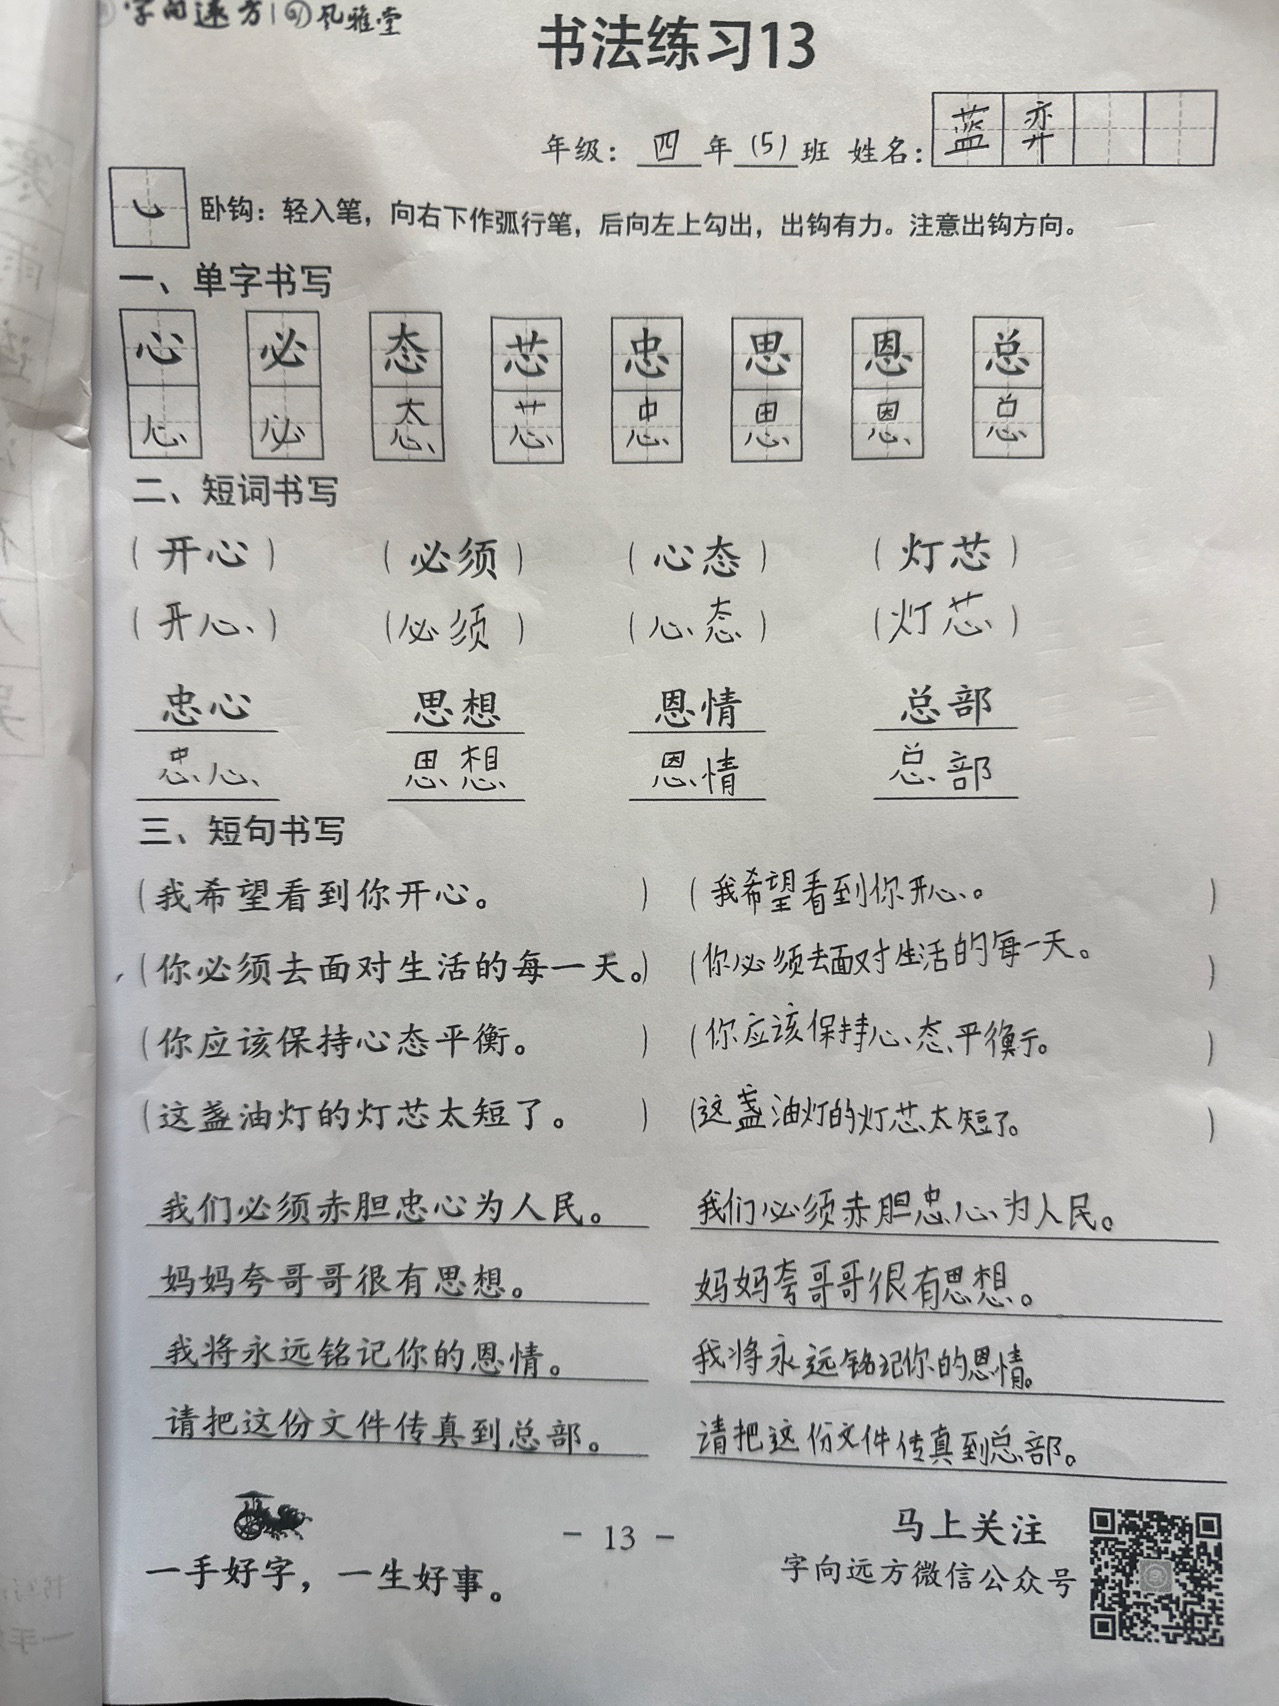 字向远方 风雅堂
书法练习13
年级：四年(5)班 姓名：蓝弈
卧钩：轻入笔，向右下作弧行笔，后向左上勾出，出钩有力。注意出钩方向。
一、单字书写
心 必 态 芯 忠 思 恩 总
心 必 态 芯 忠 思 恩 总
二、短词书写
（开心） （必须） （心态） （灯芯）
（开心） （必须） （心态） （灯芯）
忠心 思想 恩情 总部
忠心 思想 恩情 总部
三、短句书写
（我希望看到你开心。） （我希望看到你开心。）
（你必须去面对生活的每一天。） （你必须去面对生活的每一天。）
（你应该保持心态平衡。） （你应该保持心态平衡。）
（这盏油灯的灯芯太短了。） （这盏油灯的灯芯太短了。）
我们必须赤胆忠心为人民。 我们必须赤胆忠心为人民。
妈妈夸哥哥很有思想。 妈妈夸哥哥很有思想。
我将永远铭记你的恩情。 我将永远铭记你的恩情。
请把这份文件传真到总部。 请把这份文件传真到总部。
一手好字，一生好事。
- 13 -
马上关注
字向远方微信公众号